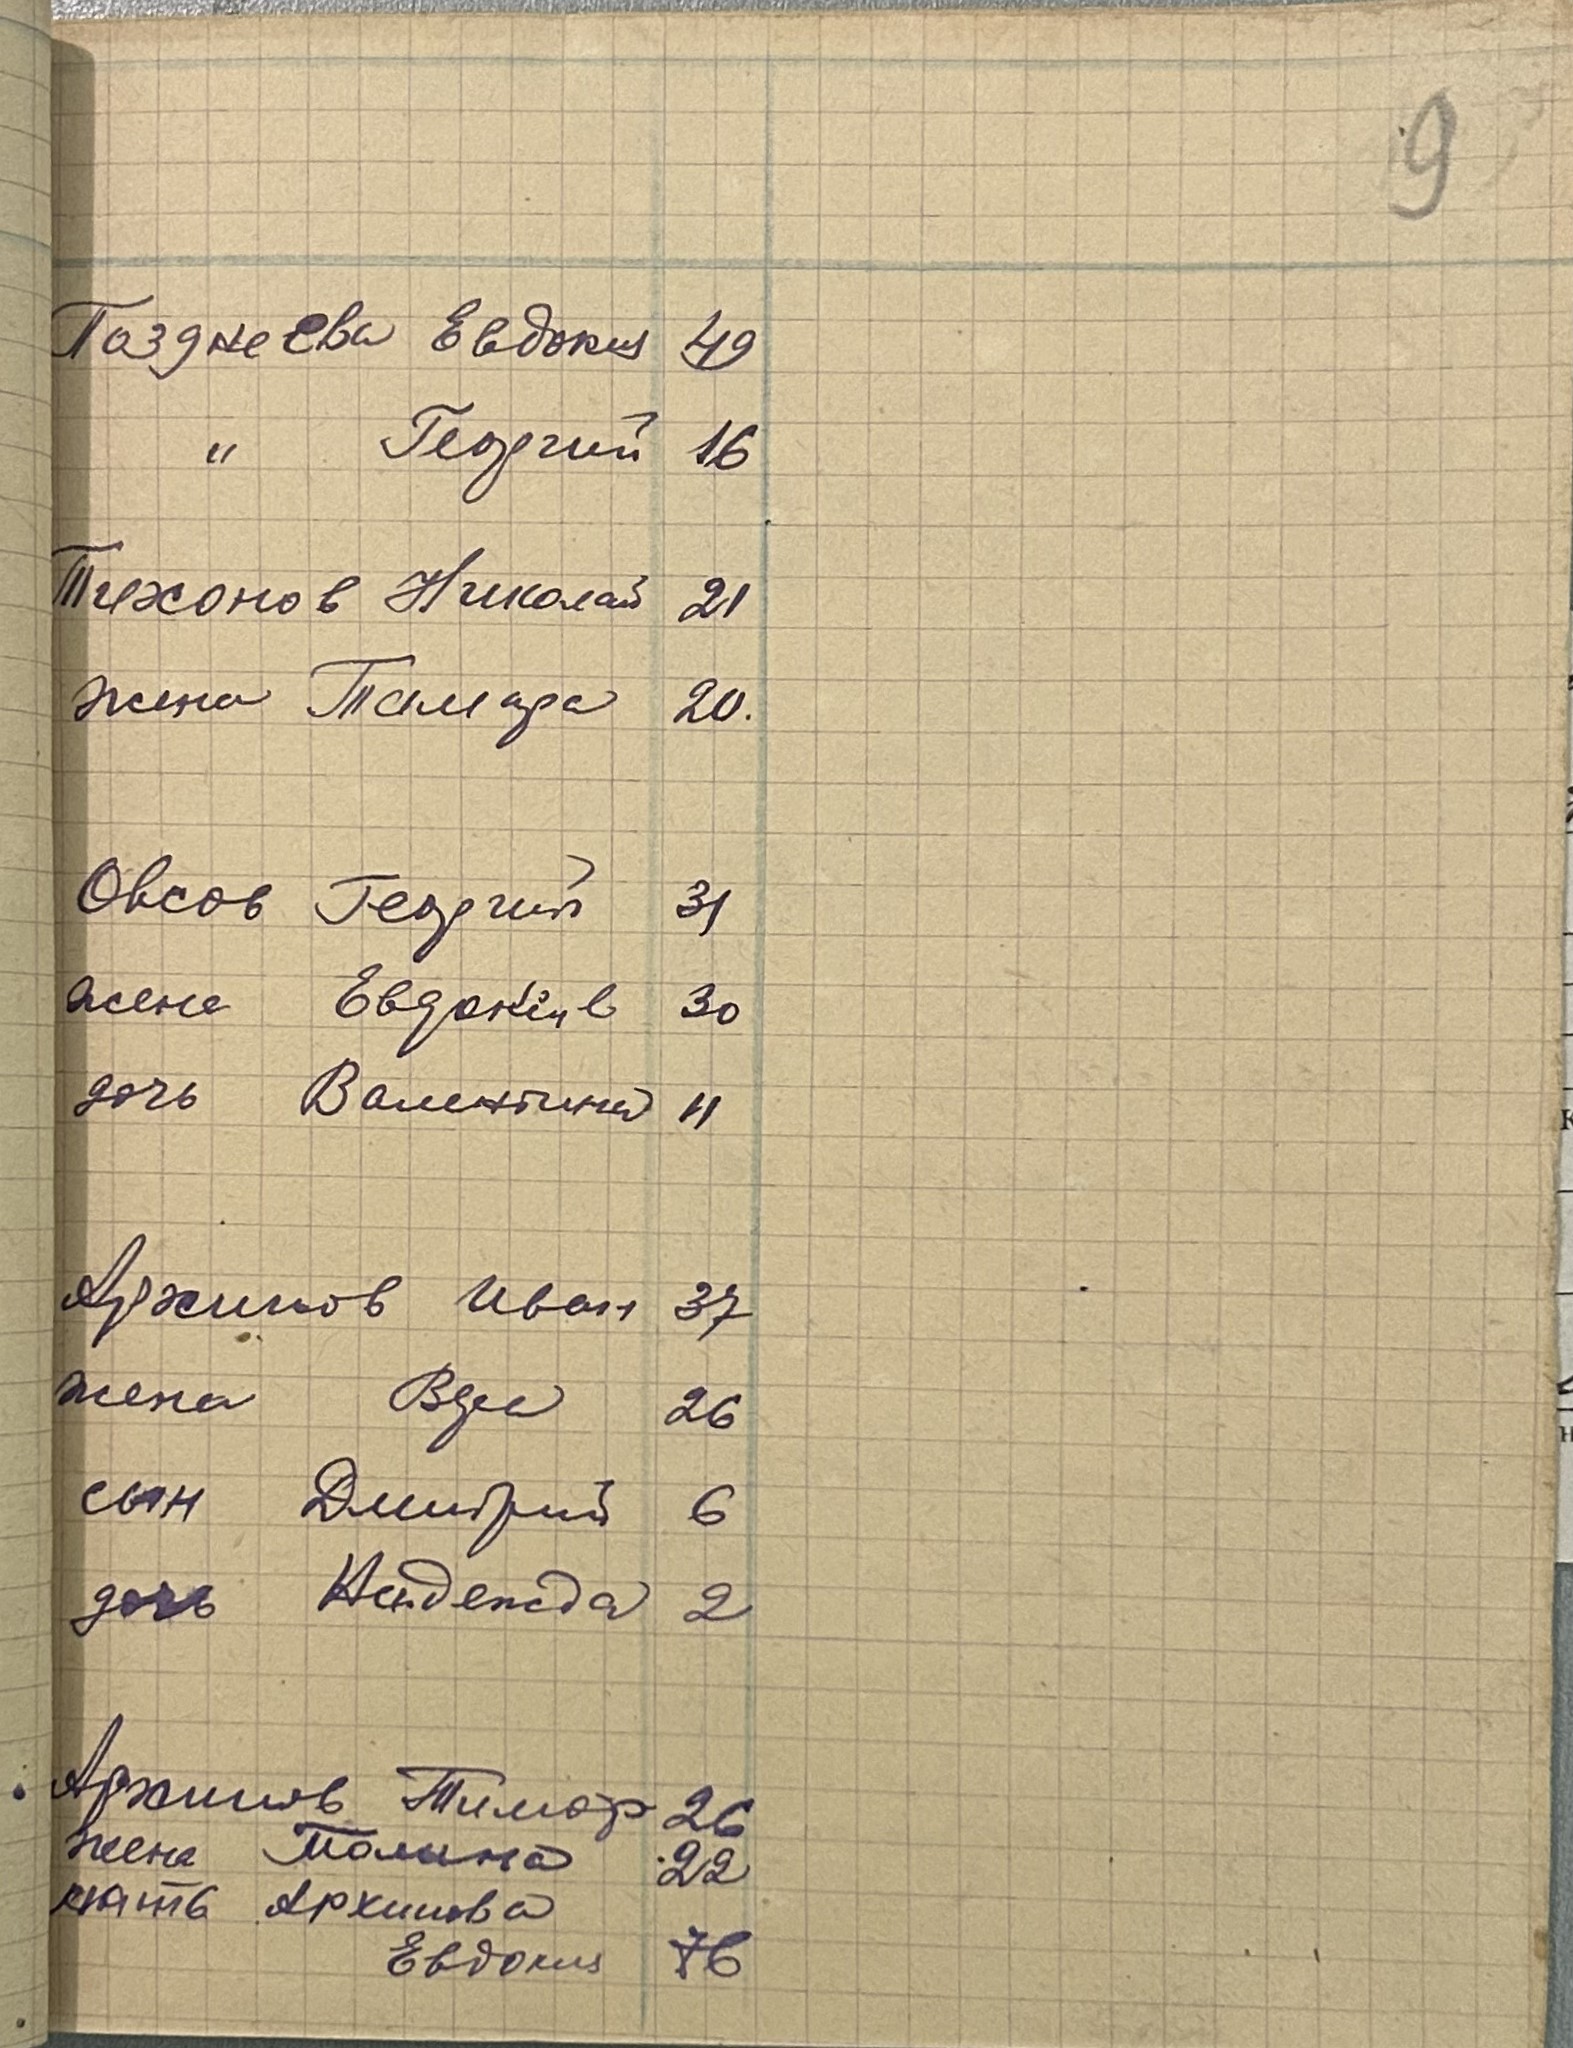 9
Позднеева Евдокия 49
" Георгий 16
Тихонов Николай 21
жена Тамара 20.
Овсов Георгий 31
жена Евдокия 30
дочь Валентина 11
Архипов Иван 37
жена Вера 26
сын Дмитрий 6
дочь Надежда 2
Архипов Тимоф 26
жена Полина 22
мать Архипова
Евдокия 76